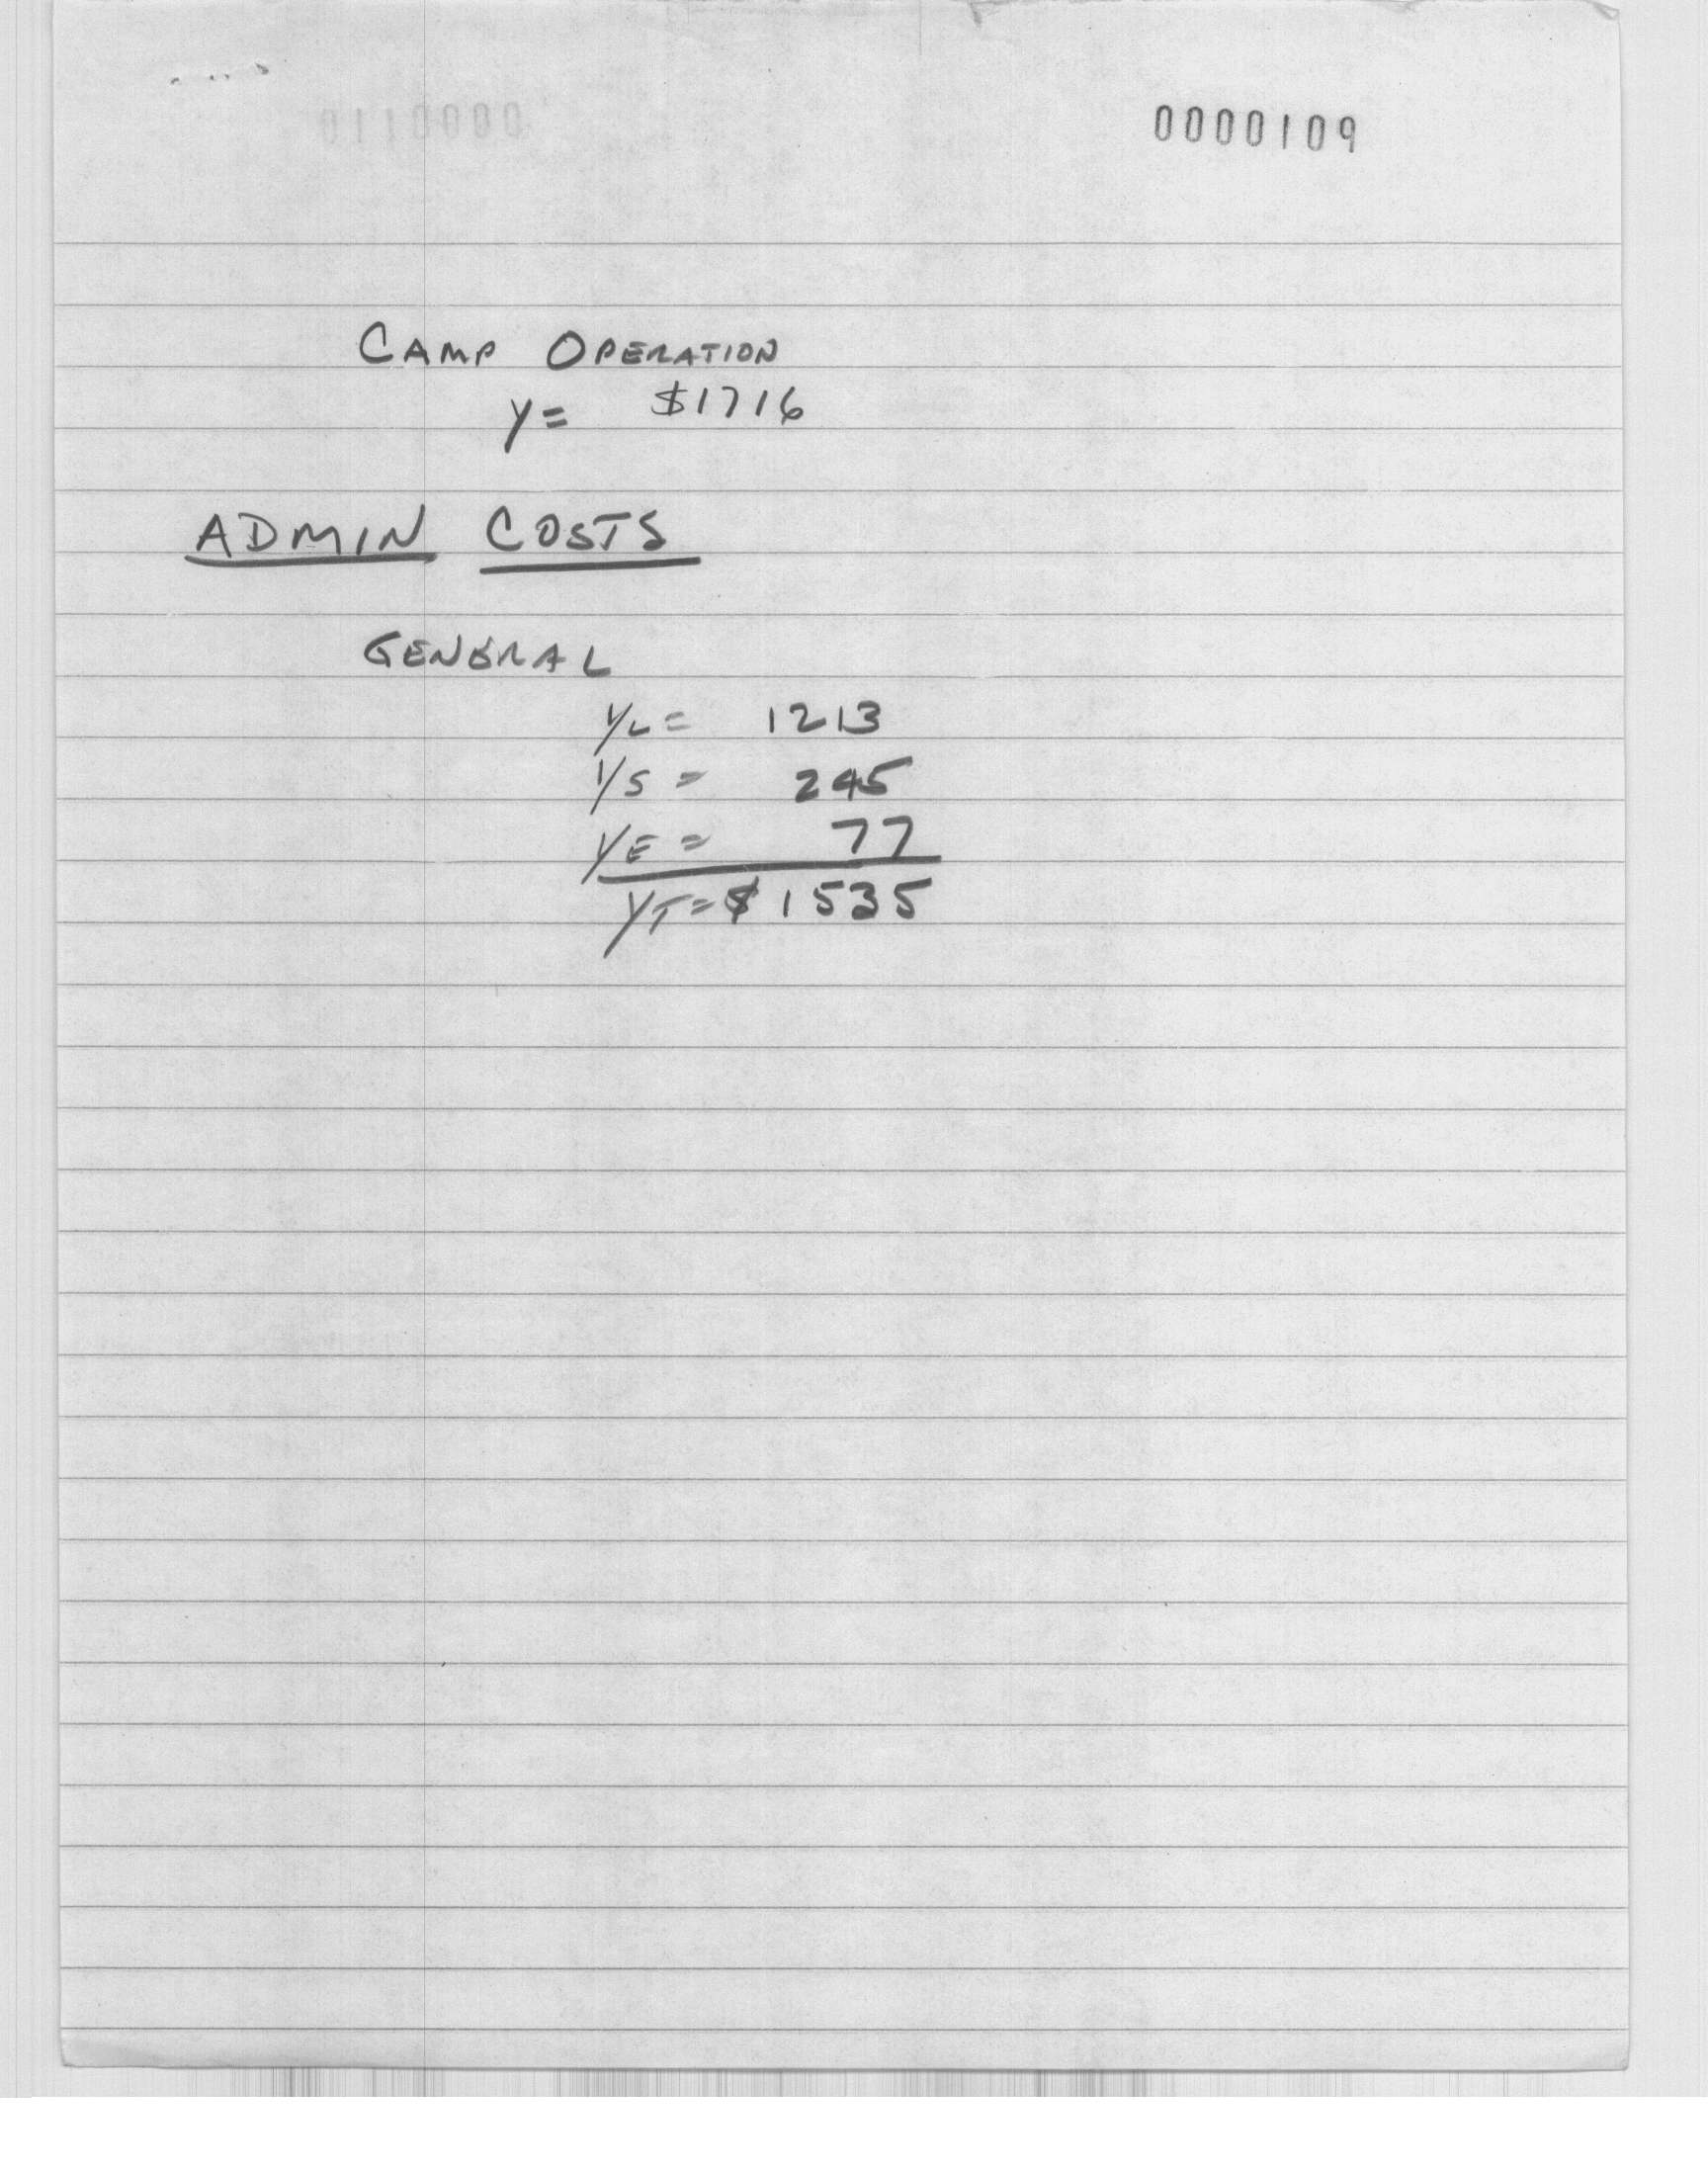 0000109
CAMP OPERATION
Y= $1716
ADMIN COSTS
GENERAL
YL = 1213
YS = 245
YE = 77
YT = $1535